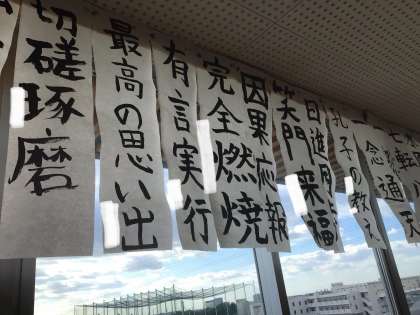 切磋琢磨
最高の思い出
有言実行
完全燃焼
因果応報
笑門来福
日進月
孔子の教え
一念通天
転